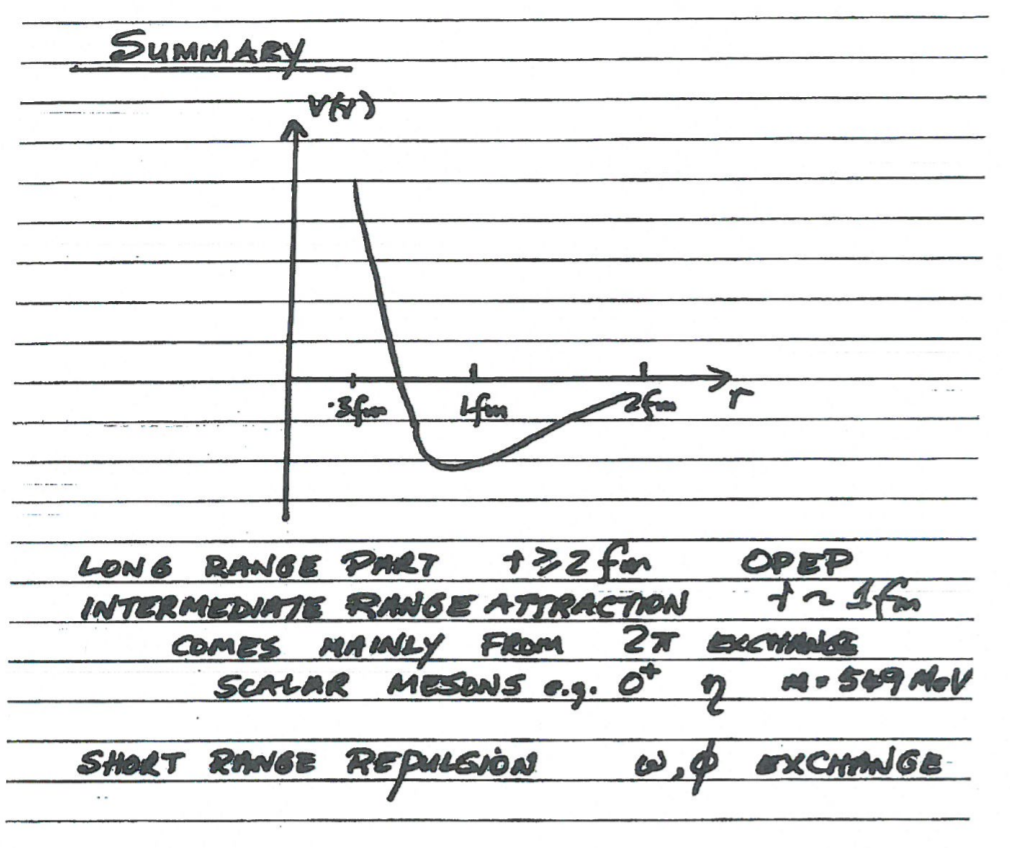 SUMMARY
V(r)
.3fm 1fm 2fm r
LONG RANGE PART r ≥ 2 fm OPEP
INTERMEDIATE RANGE ATTRACTION r ~ 1fm
COMES MAINLY FROM 2π EXCHANGE
SCALAR MESONS e.g. 0⁺ η m = 549 MeV
SHORT RANGE REPULSION ω, φ EXCHANGE